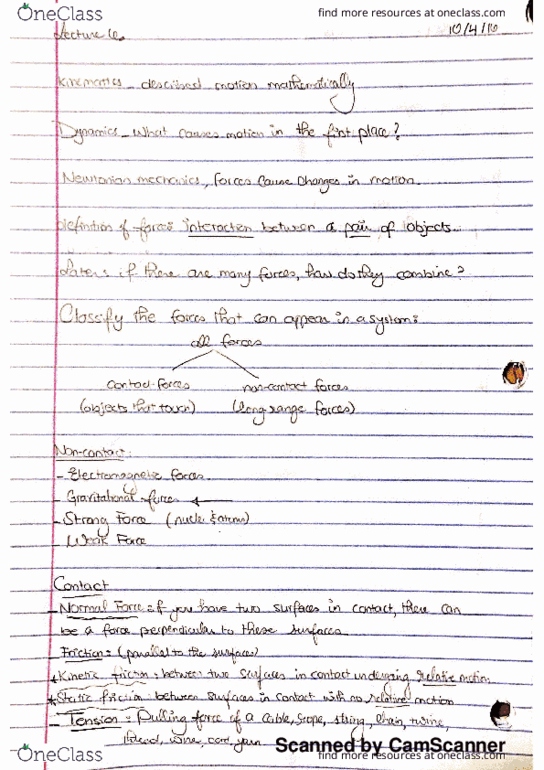 OneClass
find more resources at oneclass.com
Lecture 6
10/4/16
Kinematics - described motion mathematically
Dynamics - What causes motion in the first place?
Newtonian mechanics, forces cause changes in motion.
Definition of force: interaction between a pair of objects.
Later: if there are many forces, how do they combine?
Classify the forces that can appear in a system:
all forces
contact forces
non-contact forces
(objects that touch)
(long range forces)
Non-contact:
- Electromagnetic forces
- Gravitational forces ←
- Strong Force (nuclei & atoms)
- Weak Force
Contact
- Normal Force: if you have two surfaces in contact, there can
be a force perpendicular to these surfaces
- Friction: (parallel to the surfaces)
* Kinetic friction: between two surfaces in contact undergoing relative motion
* Static friction: between surfaces in contact with no relative motion
- Tension: Pulling force of a cable, rope, string, chain, twine,
thread, wire, cord, yarn
Scanned by CamScanner
OneClass
find more resources at oneclass.com